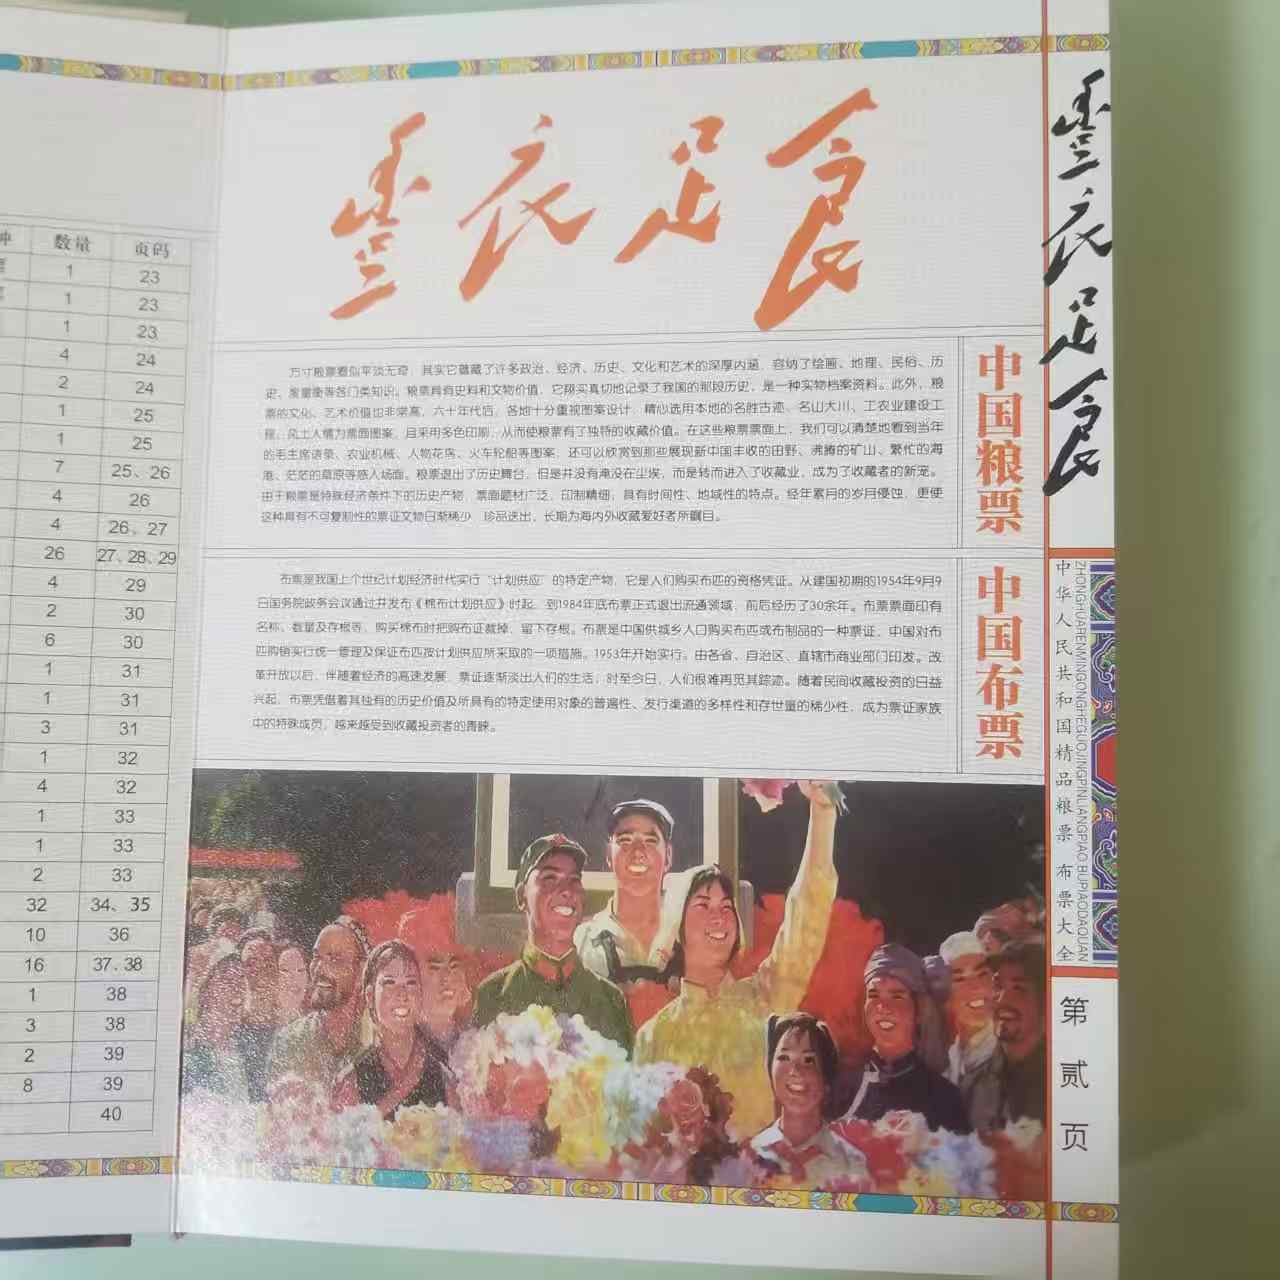 种 数量 页码
1 23
1 23
1 23
4 24
2 24
1 25
1 25
7 25、26
4 26
4 26、27
26 27、28、29
4 29
2 30
6 30
1 31
1 31
3 31
1 32
4 32
1 33
1 33
2 33
32 34、35
10 36
16 37、38
1 38
3 38
2 39
8 39
40
豐衣足食
中国粮票
方寸粮票看似平淡无奇，其实它蕴藏了许多政治、经济、历史、文化和艺术的深厚内涵，容纳了绘画、地理、民俗、历
史、度量衡等各门类知识。粮票具有史料和文物价值，它翔实真切地记录了我国的那段历史，是一种实物档案资料。此外，粮
票的文化、艺术价值也非常高，六十年代后，各地十分重视图案设计，精心选用本地的名胜古迹、名山大川、工农业建设工
程、风土人情为票面图案，且采用多色印刷，从而使粮票有了独特的收藏价值。在这些粮票票面上，我们可以清楚地看到当年
的毛主席语录、农业机械、人物花卉、火车轮船等图案，还可以欣赏到那些展现新中国丰收的田野、沸腾的矿山、繁忙的海
港、茫茫的草原等感人场面。粮票退出了历史舞台，但是并没有淹没在尘埃，而是转而进入了收藏业，成为了收藏者的新宠。
由于粮票是特殊经济条件下的历史产物，票面题材广泛，印制精细，具有时间性、地域性的特点。经年累月的岁月侵蚀，更使
这种具有不可复制性的票证文物日渐稀少，珍品迭出，长期为海内外收藏爱好者所瞩目。
中国布票
布票是我国上个世纪计划经济时代实行“计划供应”的特定产物，它是人们购买布匹的资格凭证。从建国初期的1954年9月9
日国务院政务会议通过并发布《棉布计划供应》时起，到1984年底布票正式退出流通领域，前后经历了30余年。布票票面印有
名称、数量及存根等，购买棉布时把购布证裁掉，留下存根。布票是中国供城乡人口购买布匹或布制品的一种票证，中国对布
匹购销实行统一管理及保证布匹按计划供应所采取的一项措施。1953年开始实行。由各省、自治区、直辖市商业部门印发。改
革开放以后，伴随着经济的高速发展，票证逐渐淡出人们的生活，时至今日，人们很难再觅其踪迹。随着民间收藏投资的日益
兴起，布票凭借着其独有的历史价值及所具有的特定使用对象的普遍性、发行渠道的多样性和存世量的稀少性，成为票证家族
中的特殊成员，越来越受到收藏投资者的青睐。
豐衣足食
中华人民共和国精品粮票 布票大全
ZHONGHUARENMINGONGHEGUOJINGPINLIANGPIAO BUPIAODAQUAN
第贰页